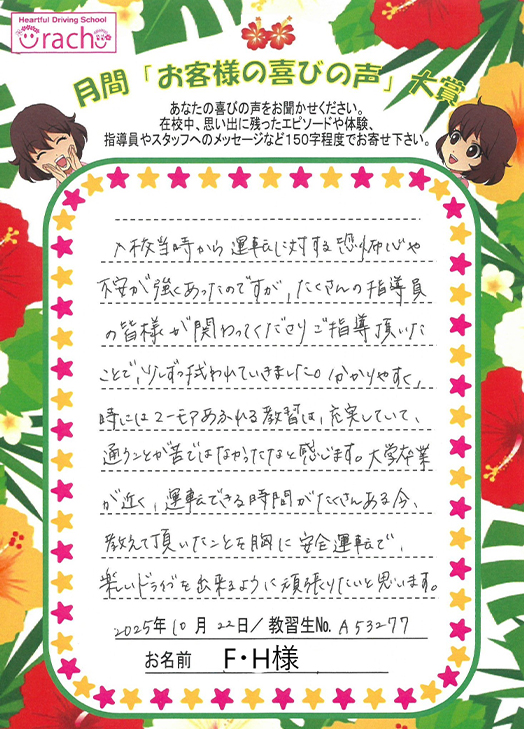 Heartful Driving School
Urach
月間「お客様の喜びの声」大賞
あなたの喜びの声をお聞かせください。
在校中、思い出に残ったエピソードや体験、
指導員やスタッフへのメッセージなど150字程度でお寄せ下さい。
入校当時から運転に対する恐怖心や
不安が強くあったのですが、たくさんの指導員
の皆様が関わってくださりご指導頂いた
ことで、少しずつ拭われていきました。分かりやすく、
時にはユーモアあふれる教習は、充実していて、
通うことが苦ではなかったなと感じます。大学卒業
が近く、運転できる時間がたくさんある今、
教えて頂いたことを胸に安全運転で、
楽しいドライブを出来るように頑張りたいと思います。
2025年10月22日/教習生No. A53277
お名前 F・H様